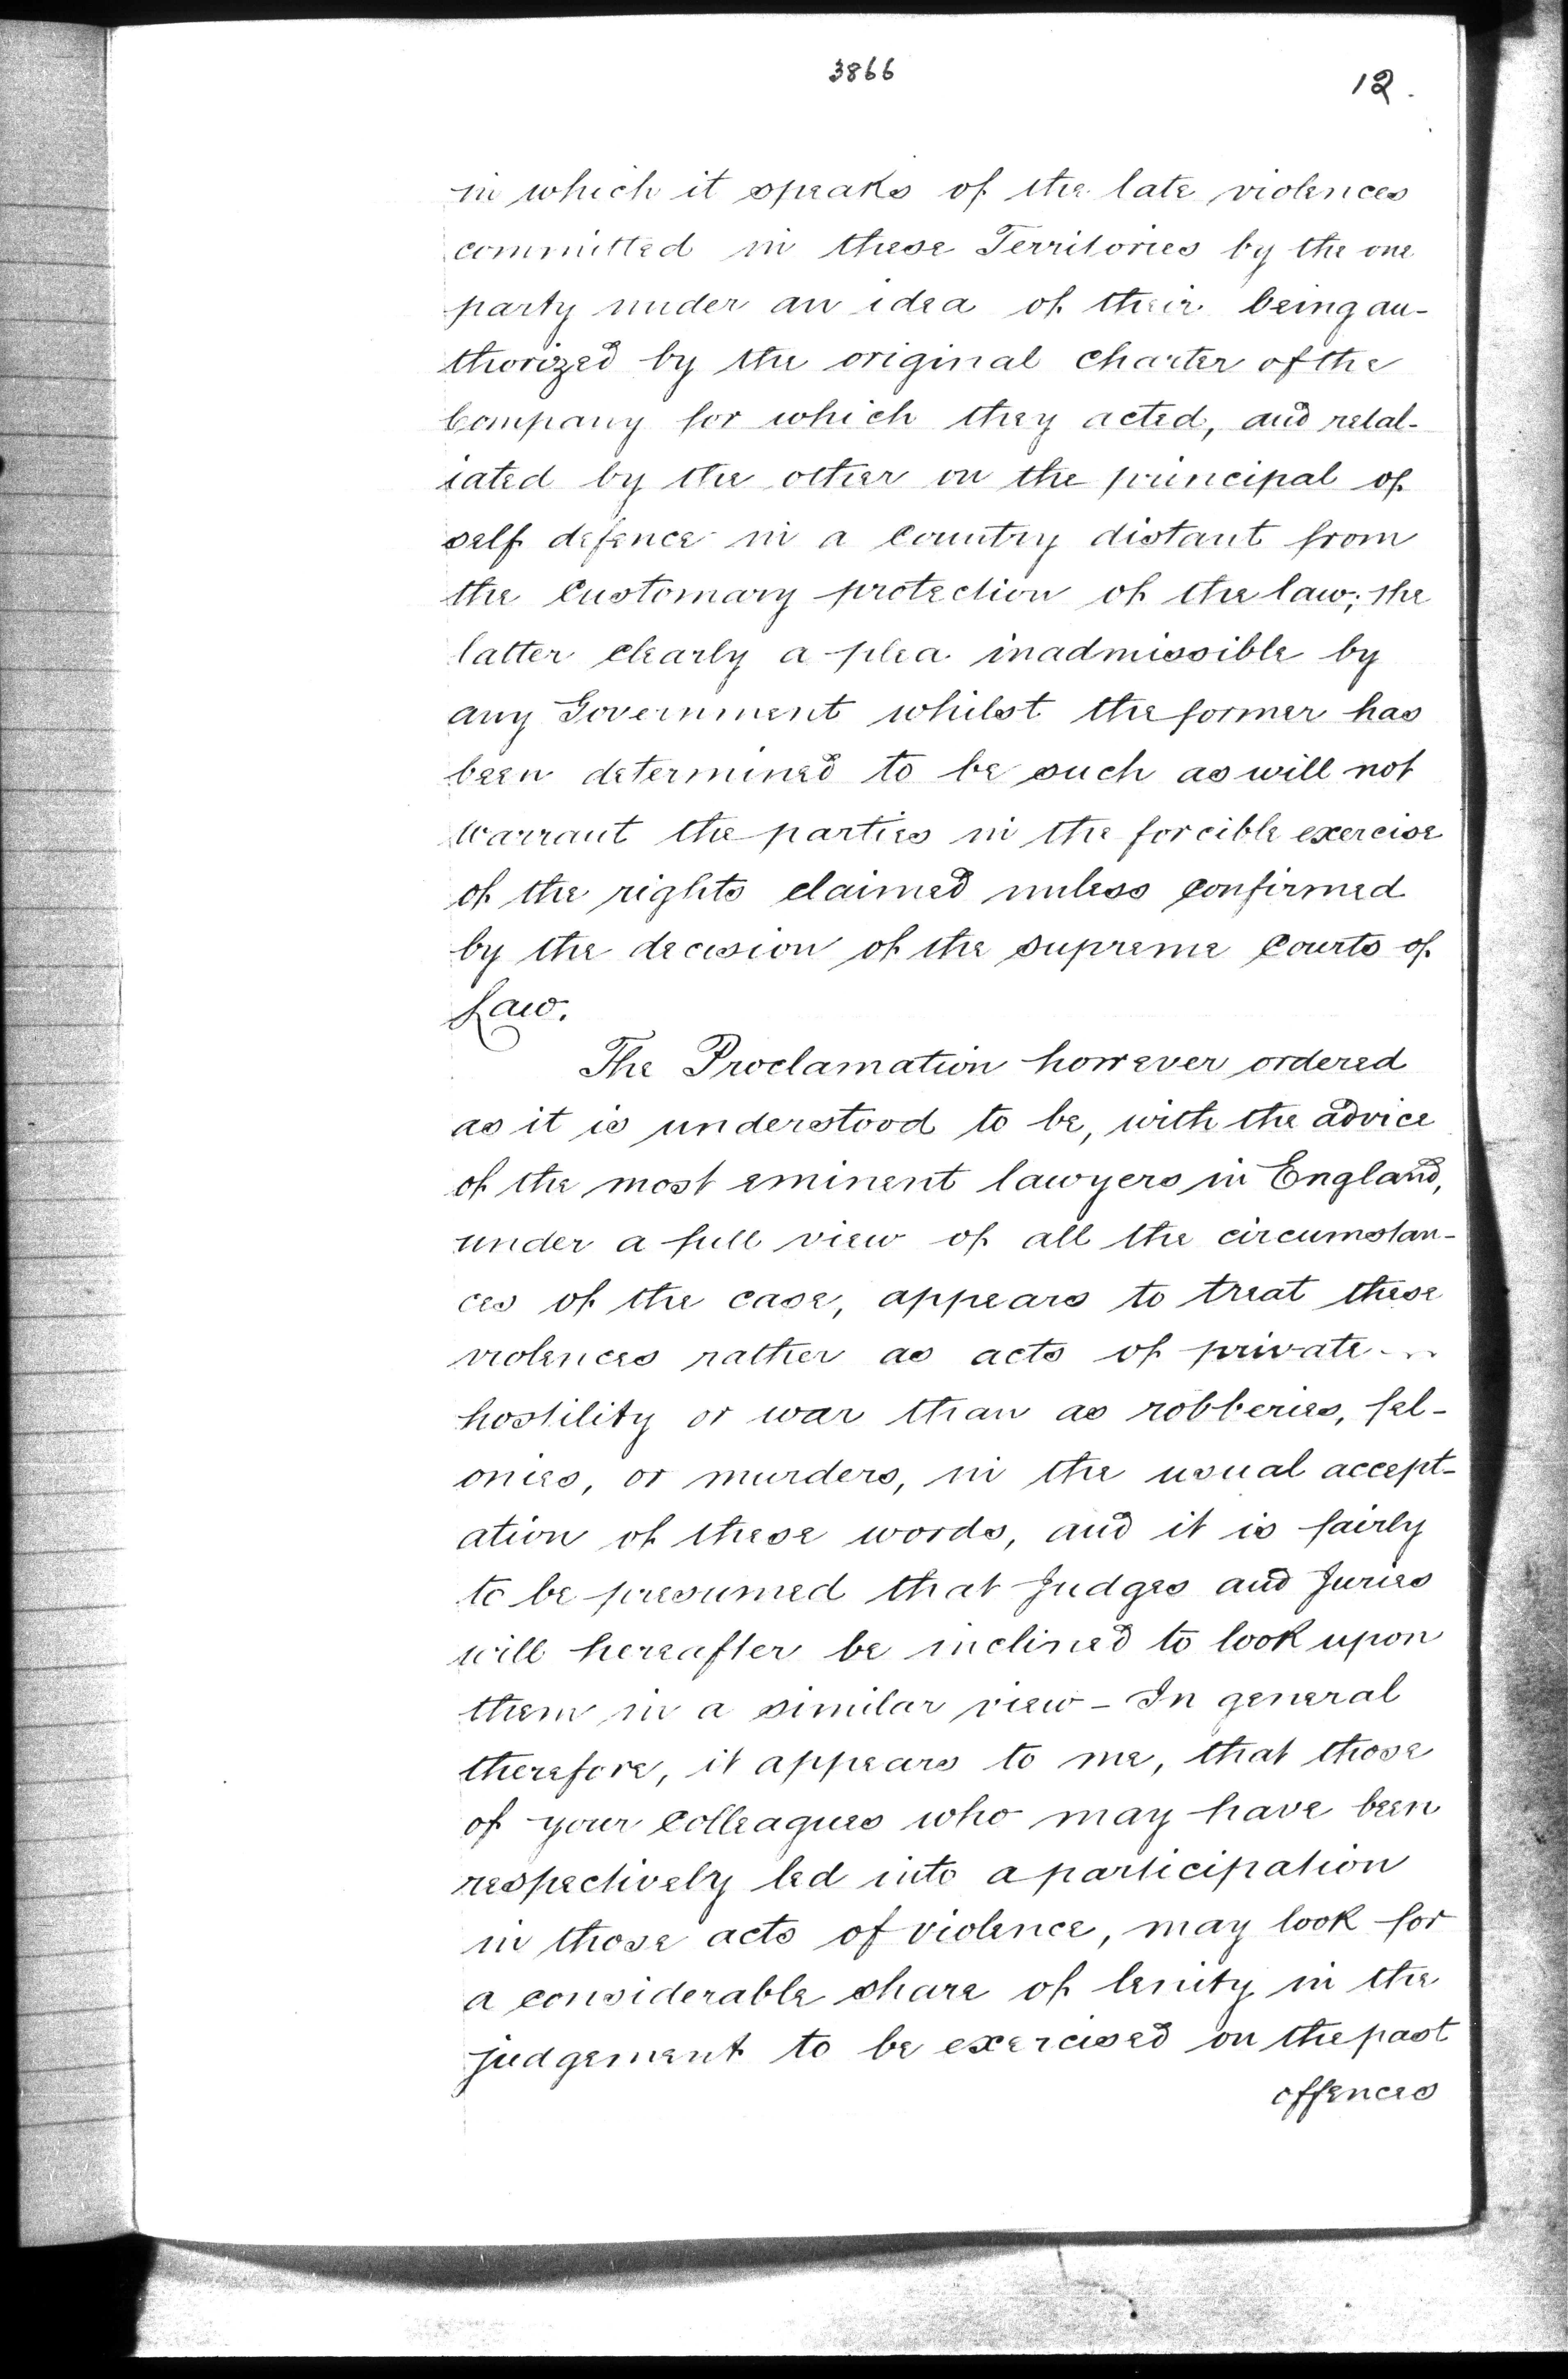 3866
12.
in which it speaks of the late violences
committed in these Territories by the one
party under an idea of their being au-
thorized by the original charter of the
Company for which they acted, and retal-
iated by the other on the principal of
self defence in a Country distant from
the Customary protection of the law; the
latter clearly a plea inadmissible by
any Government whilst the former has
been determined to be such as will not
warrant the parties in the forcible exercise
of the rights claimed unless confirmed
by the decision of the supreme Courts of
Law.
The Proclamation however ordered
as it is understood to be, with the advice
of the most eminent lawyers in England,
under a full view of all the circumstan-
ces of the case, appears to treat these
violences rather as acts of private
hostility or war than as robberies, fel-
onies, or murders, in the usual accept-
ation of these words, and it is fairly
to be presumed that Judges and Juries
will hereafter be inclined to look upon
them in a similar view - In general
therefore, it appears to me, that those
of your Colleagues who may have been
respectively led into a participation
in those acts of violence, may look for
a considerable share of lenity in the
judgement to be exercised on the past
offences